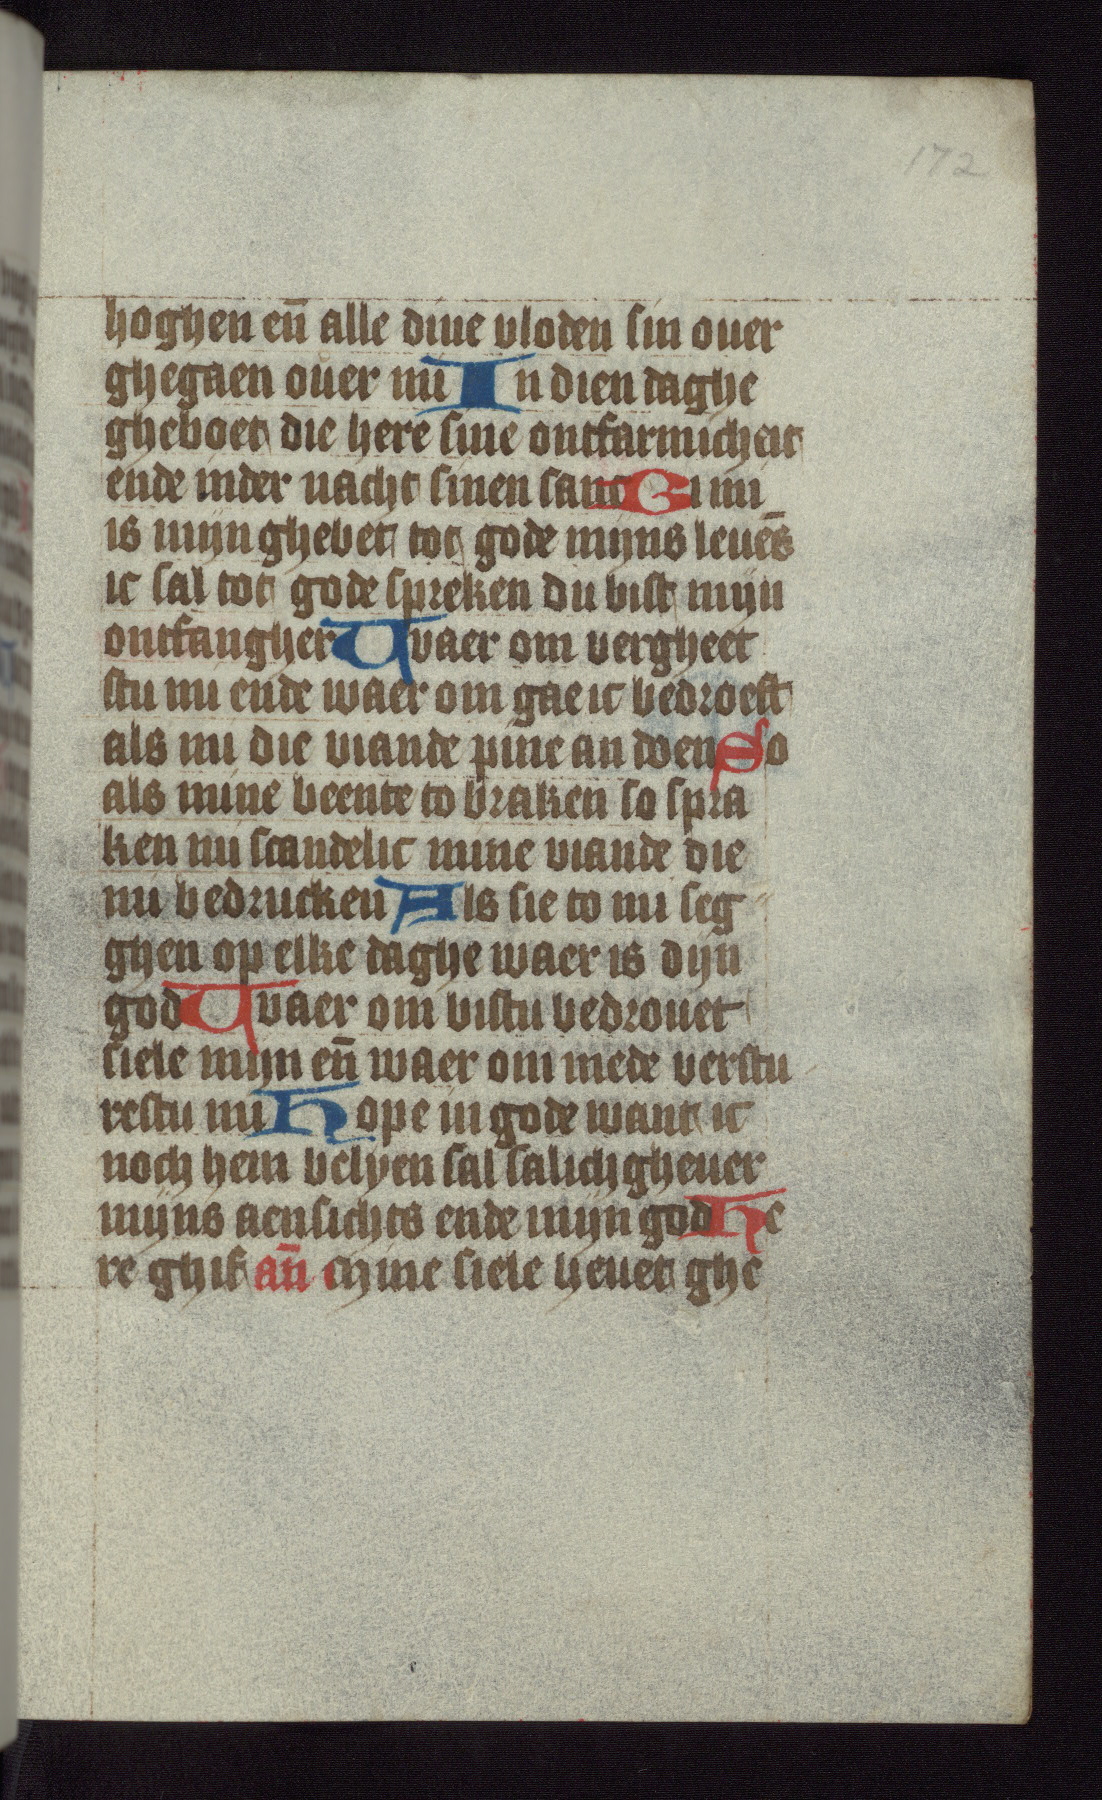 172
hoghen en̄ alle dine vloden sin ouer
ghegaen ouer mi In dien daghe
gheboet die here sine ontfarmicheit
ende inder nacht sinen sanc Bi mi
is mijn ghebet tot gode mijns leuēs
ic sal tot gode spreken du bist mijn
ontfangher Waer om vergheet
stu mi ende waer om gae ic bedroeft
als mi die viande pine an doen So
als mine beente to braken so spra
ken mi scandelic mine viande die
mi bedrucken Als sie to mi seg
ghen op elke daghe waer is dijn
god Waer om bistu bedrouet
siele mijn en̄ waer om mede verstu
restu mi Hope in gode want ic
noch hem belyen sal salichgheuer
mijns aensichts ende mijn god He
re ghif an̄ Mine siele heuet ghe